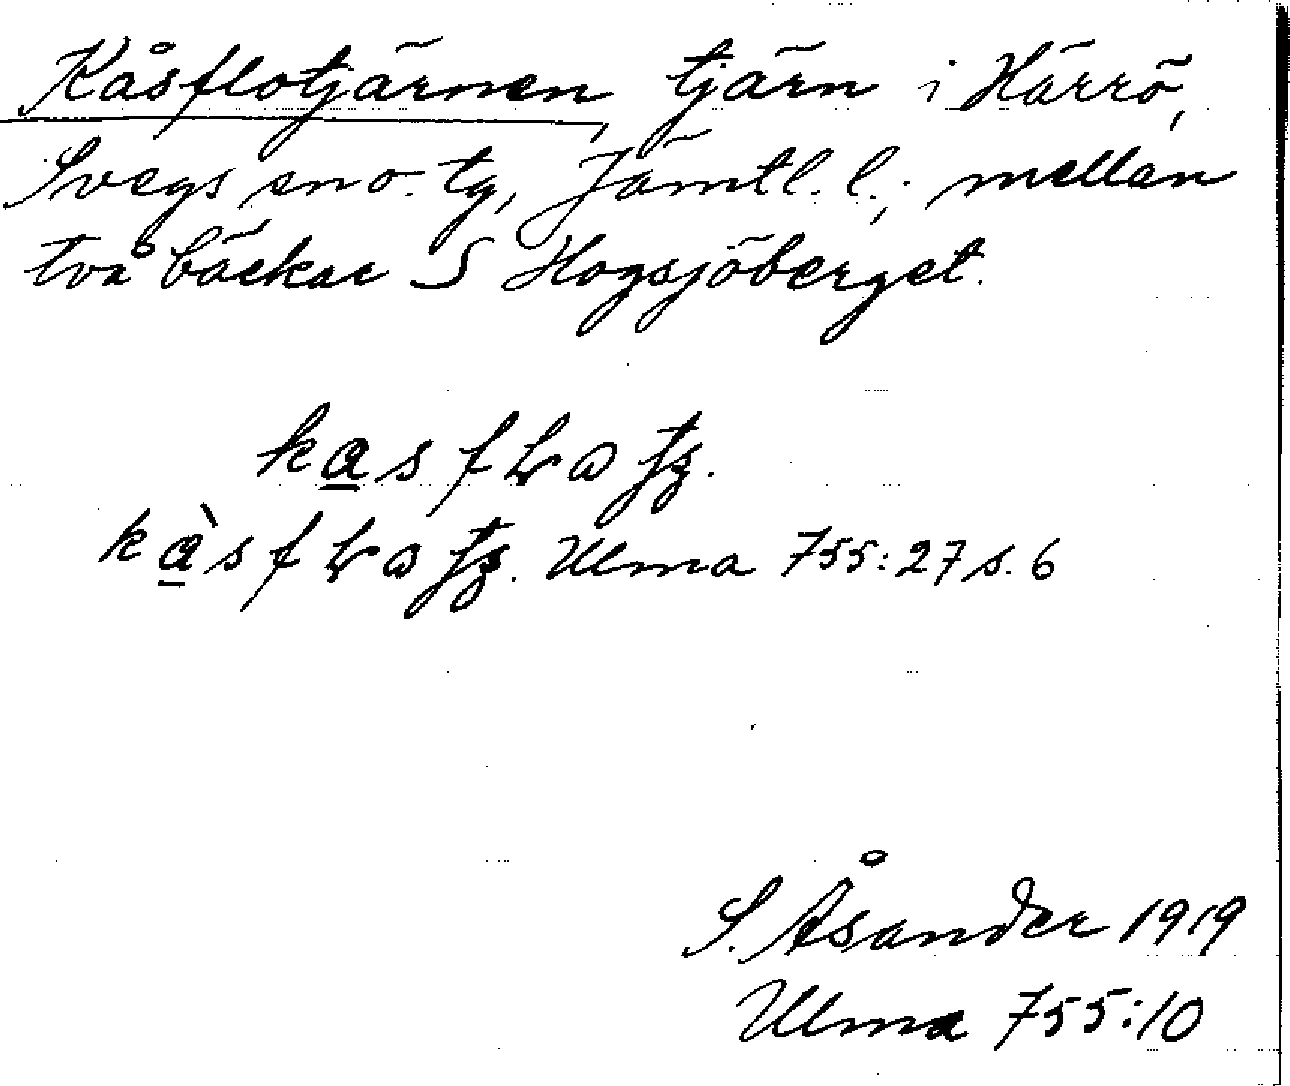 Kåsflotjärnen, tjärn i Härrö,
Svegs sn o. tg, Jämtl. l., mellan
två bäckar S Hogsjöberget.
kasf
kàsf Ulma 755:27 s. 6
S. Åsander 1919
Ulma 755:10